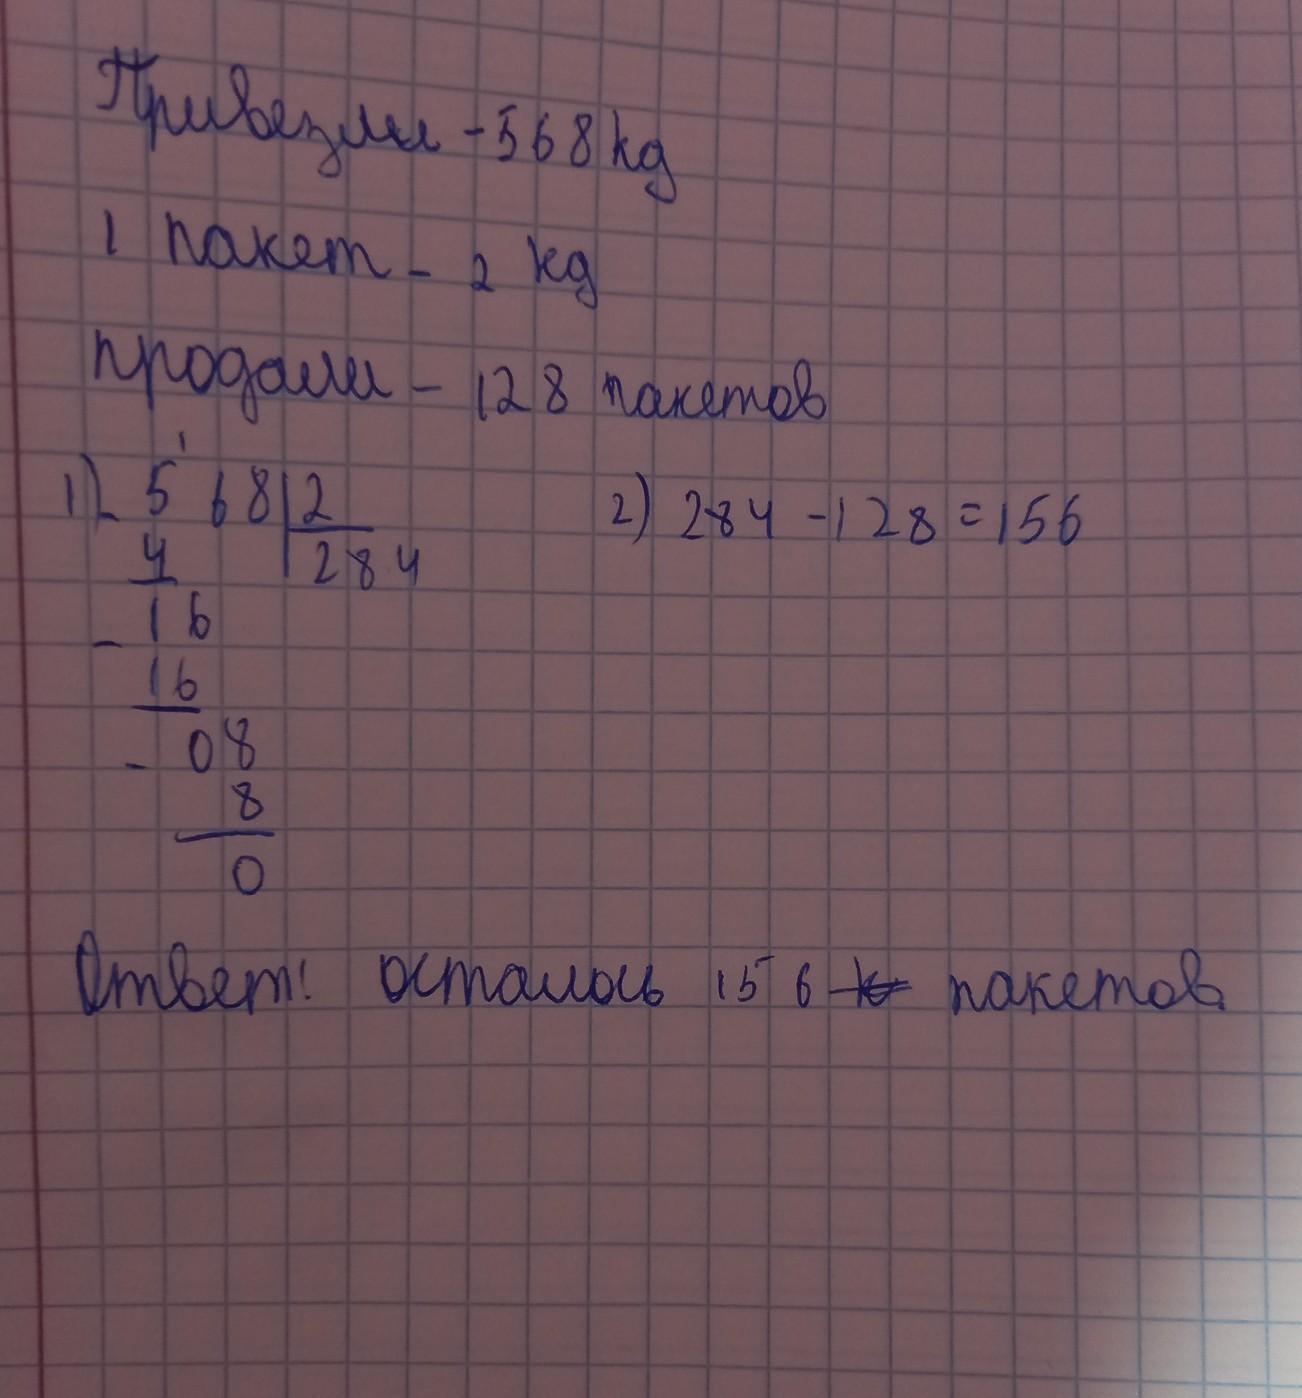 Привезли - 568 kg
1 пакет - 2 kg
продали - 128 пакетов
1) 568 | 2
2) 284 - 128 = 156
4 284
- 16
16
- 08
8
0
Ответ: осталось 156 пакетов